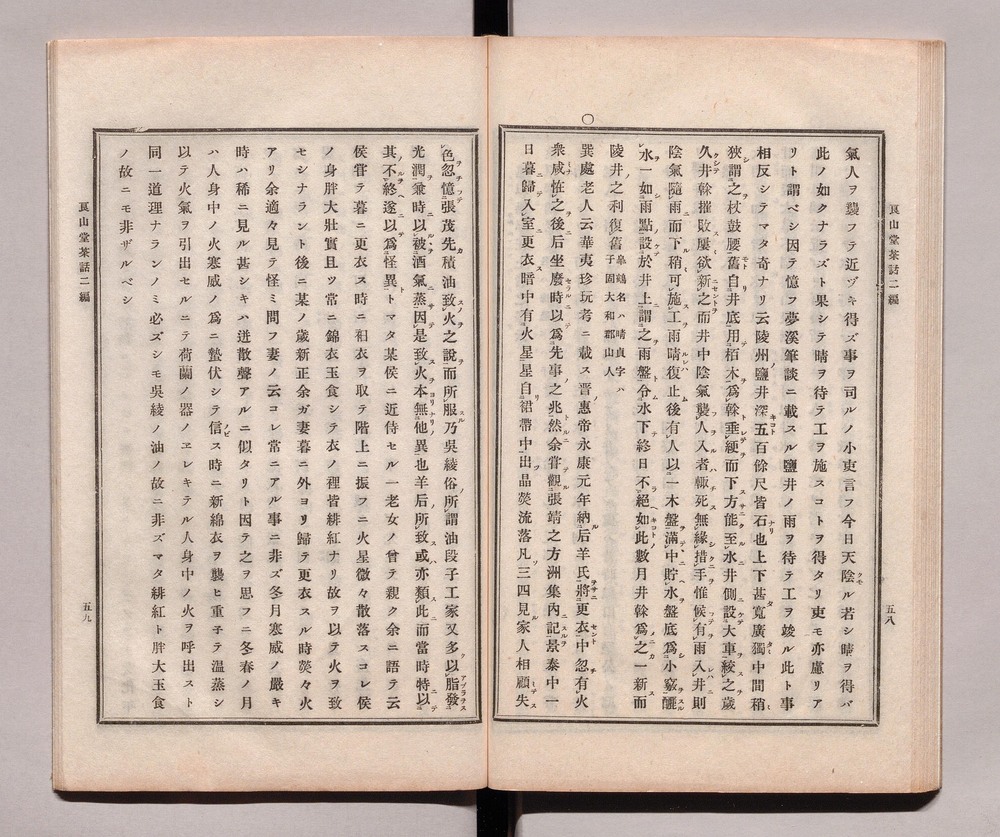 艮山堂茶話二編
五八
氣人ヲ襲フテ近ヅキ得ズ事ヲ司ルノ小吏言フ今日天陰ル若シ晴ヲ得バ
此ノ如クナラズト果シテ晴ヲ待テ工ヲ施スコトヲ得タリ吏モ亦慮リア
リト謂ベシ因テ憶フ夢溪筆談ニ載スル鹽井ノ雨ヲ待テ工ヲ竣ル此ト事
相反シテマタ奇ナリ云陵州鹽井深五百餘尺皆石也上下甚寬廣獨中間稍
狹謂之杖鼓腰舊自井底用栢木爲榦垂綆而下方能至水井側設大車絞之歲
久井榦摧敗屢欲新之而井中陰氣襲人入者輒死無緣措手惟候有雨入井則
陰氣隨雨而下稍可施工雨晴復止後有人以一木盤滿中貯水盤底爲小竅釃
水一如雨點設於井上謂之雨盤令水下終日不絕如此數月井榦爲之一新而
陵井之利復舊
皐鶴名ハ晴貞字ハ
于固大和郡山人
○
巽處老人云華夷珍玩考ニ載ス晋惠帝永康元年納后羊氏將更衣中忽有火
衆咸恠之後后坐廢時以爲先事之兆然余甞觀張靖之方洲集內記景泰中一
日暮歸入室更衣暗中有火星星自裙帶中出晶熒流落凡三四見家人相顧失
色忽憶張茂先積油致火之說而所服乃吳綾俗所謂油段子工家又多以脂發
光潤兼時以被酒氣蒸因是致火本無他異也羊后所致或亦類此而當時特以
其不終遂以爲怪異トマタ某侯ニ近侍セル一老女ノ曾テ親ク余ニ語テ云
侯甞テ暮ニ更衣ス時ニ袒衣ヲ取テ階上ニ振フニ火星微々散落スコレ侯
ノ身胖大壯實且ツ常ニ錦衣玉食シテ衣ノ裡皆緋紅ナリ故ヲ以テ火ヲ致
セシナラント後ニ某ノ歲新正余ガ妻暮ニ外ヨリ歸テ更衣スル時熒々火
アリ余適々見テ怪ミ問フ妻ノ云コレ常ニアル事ニ非ズ冬月寒威ノ嚴キ
時ハ稀ニ見ル甚シキハ迸散聲アルニ似タリト因テ之ヲ思フニ冬春ノ月
ハ人身中ノ火寒威ノ爲ニ蟄伏シテ信ス時ニ新綿衣ヲ襲ヒ重子テ溫蒸シ
以テ火氣ヲ引出セルニテ荷蘭ノ器ノヱレキテル人身中ノ火ヲ呼出スト
同一道理ナランノミ必ズシモ吳綾ノ油ノ故ニ非ズマタ緋紅ト胖大玉食
ノ故ニモ非ザルベシ
艮山堂茶話二編
五九